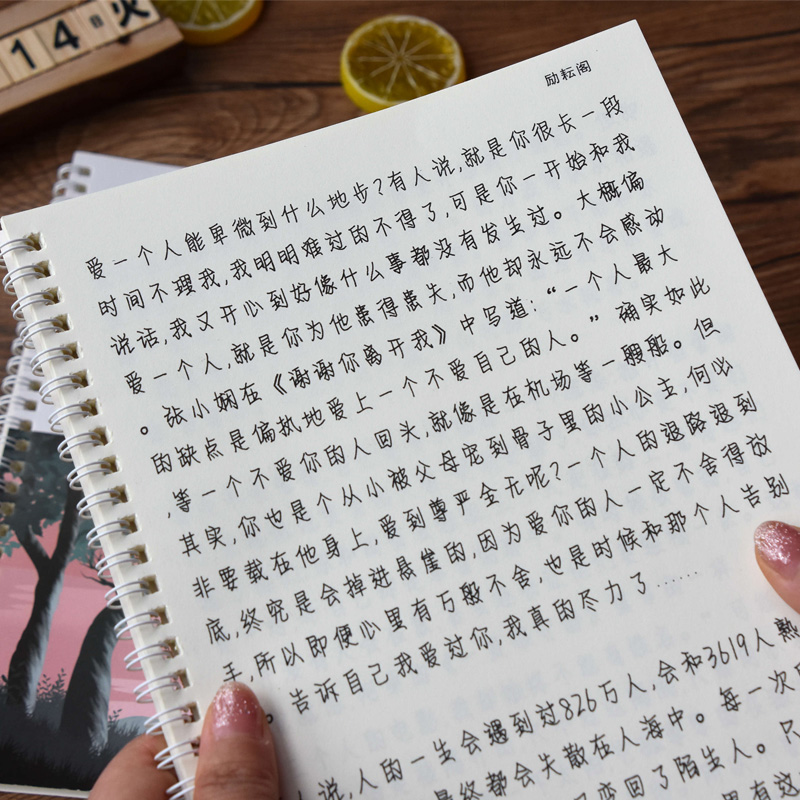 14 火
励耘阁
爱一个人能卑微到什么地步?有人说,就是你很长一段
时间不理我,我明明难过的不得了,可是你一开始和我
说话,我又开心到好像什么事都没有发生过。大概偏
爱一个人,就是你为他患得患失,而他却永远不会感动
。张小娴在《谢谢你离开我》中写道:“一个人最大
的缺点是偏执地爱上一个不爱自己的人。”确实如此
,等一个不爱你的人回头,就像是在机场等一艘船。但
其实,你也是个从小被父母宠到骨子里的小公主,何必
非要载在他身上,爱到尊严全无呢?一个人的退路退到
底,终究是会掉进悬崖的,因为爱你的人一定不舍得放
手,所以即便心里有万般不舍,也是时候和那个人告别
。告诉自己我爱过你,我真的尽力了……
说,人的一生会遇到过826万人,会和3619人熟
最终都会失散在人海中。每一次
变回了陌生人。只
里有这